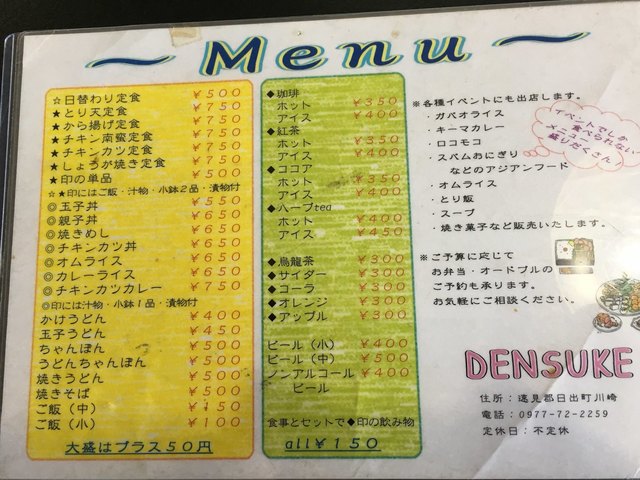 ～Menu～
☆日替わり定食 ￥500
★とり天定食 ￥750
★から揚げ定食 ￥750
★チキン南蛮定食 ￥750
★チキンカツ定食 ￥750
★しょうが焼き定食 ￥750
★印の単品 ￥500
☆★印にはご飯・汁物・小鉢2品・漬物付
◎玉子丼 ￥550
◎親子丼 ￥650
◎焼きめし ￥650
◎チキンカツ丼 ￥650
◎オムライス ￥650
◎カレーライス ￥650
◎チキンカツカレー ￥750
◎印には汁物・小鉢1品・漬物付
かけうどん ￥400
玉子うどん ￥450
ちゃんぽん ￥500
うどんちゃんぽん ￥500
焼きうどん ￥500
焼きそば ￥500
ご飯（中） ￥150
ご飯（小） ￥100
大盛はプラス50円
◆珈琲
ホット ￥350
アイス ￥400
◆紅茶
ホット ￥350
アイス ￥400
◆ココア
ホット ￥350
アイス ￥400
◆ハーブtea
ホット ￥400
アイス ￥450
◆烏龍茶 ￥300
◆サイダー ￥300
◆コーラ ￥300
◆オレンジ ￥300
◆アップル ￥300
ビール（小） ￥400
ビール（中） ￥500
ノンアルコール ￥400
ビール
食事とセットで◆印の飲み物
all￥150
※各種イベントにも出店します。
・ガパオライス
・キーマカレー
・ロコモコ
・スパムおにぎり
などのアジアンフード
・オムライス
・とり飯
・スープ
・焼き菓子など販売いたします。
イベントでしか
食べられない
メニューが
盛りだくさん
※ご予算に応じて
お弁当・オードブルの
ご予約も承ります。
お気軽にご相談ください。
DENSUKE
住所：速見郡日出町川崎
電話：0977-72-2259
定休日：不定休